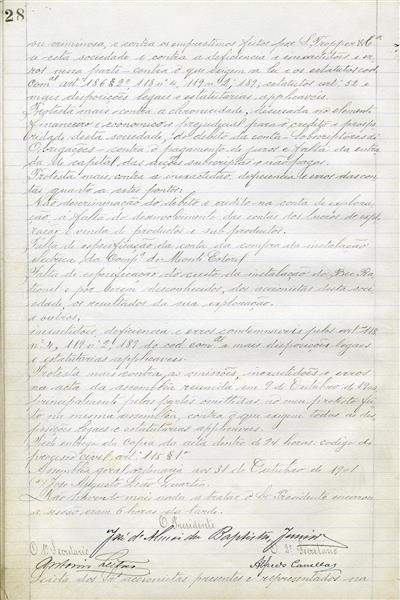 28
ou criminosa, e contra os emprestimos feitos por S. Tropper & Cª
a esta sociedade e contra a deficiencia e inexactidões e er-
ros nessa parte - contra o que exigem a lei e os estatutos cod.
Comal artos 186 § 2º, 118 nº 4, 119 nº 2, 189, estatutos artº 52 e
mais disposições legaes e estatutarias applicaveis.
Protesta mais contra a chamada,
financeiro e economico e prejudicial para o credito e prospe-
ridade desta sociedade, do debito da conta - Subscriptores de
Obrigações - contra o pagamento de juros e falta da entra-
da de capital das acções subscriptas e não pagas.
Protesta mais contra a inexactidão, deficiencia e erros das con-
tas quanto a estes pontos:
Não descriminação do debito e credito na conta de explora-
ção, a falta de desenvolvimento das contas dos lucros de explo-
ração e venda de productos e sub-productos.
Falta de especificação da conta da compra da instalação
electrica pela Compª do Mont'Estoril
Falta de especificação do custo da instalação do Bec Ra-
tional e por serem desconhecidos, dos accionistas desta socie-
dade, os resultados da sua exploração.
e outros,
inexactidões, deficiencia e erros condemnaveis pelos artos 118
nº 4, 119 nº 2, 189 do cod. comal e mais disposições legaes
e estatutarias applicaveis.
Protesta mais contra as omissões, inexactidões e erros
na acta da assemblea reunida em 9 de Outubro de 190
principalmente pelas partes omittidas, no meu protesto fei-
to na mesma assemblea, contra o que exigem todas as dis-
posições legaes e estatutarias applicaveis.
Pede entrega da copia da acta dentro de 24 horas codigo do
processo civel artº 115 § 1º
Assemblea geral ordinaria aos 31 de Outubro de 1901
José Augusto Leão Quartin
Não havendo mais nada a tratar o Sr Presidente encerrou
a sessão eram 6 horas da tarde.
O Presidente
José d'Almei da Baptista Junior
O 1º Secretario O 2º Secretario
Antonio Leitão Alfredo Canellas
Lista dos Srs accionistas presentes e representados na